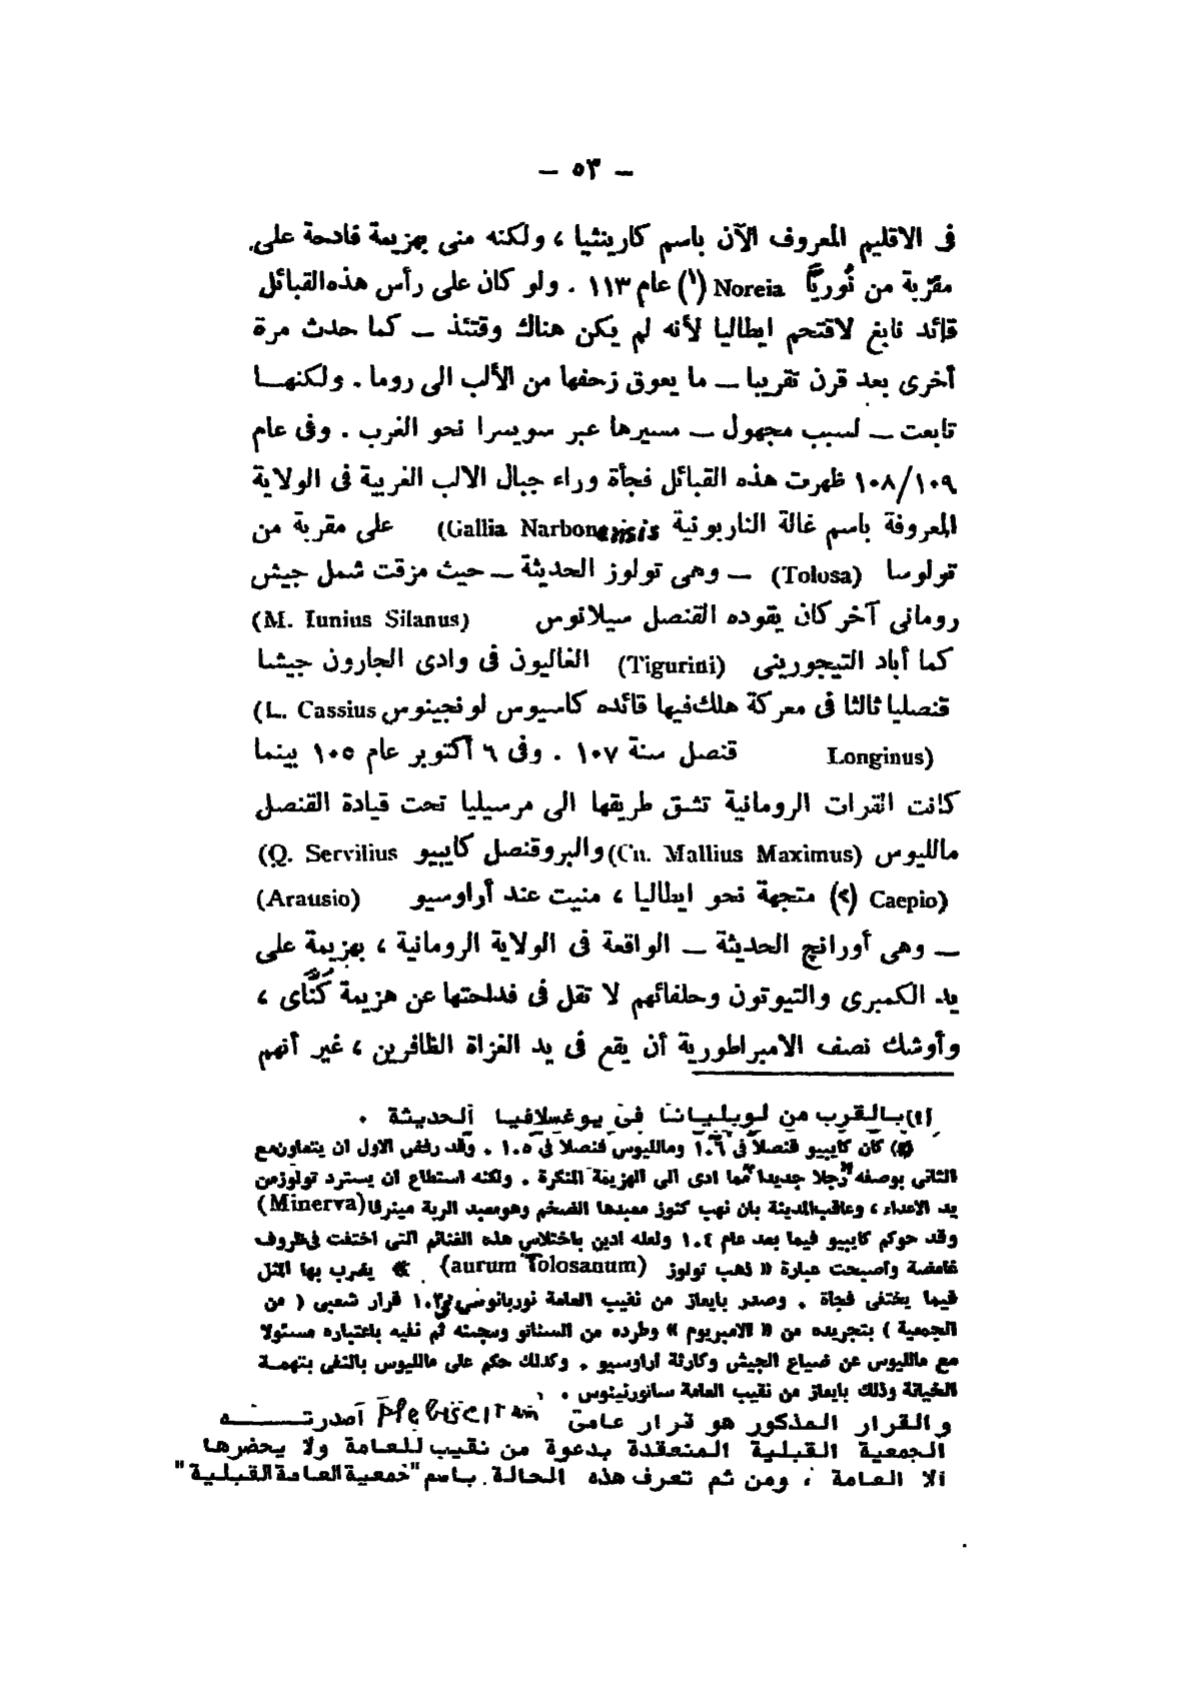 — ٥٣ —
فى الاقليم المعروف الآن باسم كارينثيا ، ولكنه منى بهزيمة فادحة على
مقرّبة من نُوريَّا Noreia (١) عام ١١٣ . ولو كان على رأس هذه القبائل
قائد نابغ لاقتحم ايطاليا لأنه لم يكن هناك وقتئذ — كما حدث مرة
أخرى بعد قرن تقريبا — ما يعوق زحفها من الألب الى روما . ولكنهـــا
تابعت — لسبب مجهول — مسيرها عبر سويسرا نحو الغرب . وفى عام
١٠٨/١٠٩ ظهرت هذه القبائل فجأة وراء جبال الالب الغربية فى الولاية
المعروفة باسم غالة الناربونية (Gallia Narbonensis على مقربة من
تولوسا (Tolosa) — وهى تولوز الحديثة — حيث مزقت شمل جيش
رومانى آخر كان يقوده القنصل سيلانوس (M. Iunius Silanus)
كما أباد التيجورينى (Tigurini) الغاليون فى وادى الجارون جيشا
قنصليا ثالثا فى معركة هلك فيها قائده كاسيوس لونجينوس (L. Cassius
Longinus) قنصل سنة ١٠٧ . وفى ٦ أكتوبر عام ١٠٥ بينما
كانت القرات الرومانية تشق طريقها الى مرسيليا تحت قيادة القنصل
ماللیوس (Cn. Mallius Maximus) والبروقنصل كايبيو (Q. Servilius
Caepio) (٢) متجهة نحو ايطاليا ، منيت عند أراوسيو (Arausio)
— وهى أورانج الحديثة — الواقعة فى الولاية الرومانية ، بهزيمة على
يد الكمبرى والتيوتون وحلفائهم لا تقل فى فداحتها عن هزيمة كنَّاى ،
وأوشك نصف الامبراطورية أن يقع فى يد الغزاة الظافرين ، غير أنهم
(١) بالقرب من لوبليانا فى يوغسلافيا الحديثة .
(٢) كان كايبيو قنصلا فى ١٠٦ وماللیوس قنصلا فى ١٠٥ . وقد رفض الاول ان يتعاون مع
الثانى بوصفه "رجلا جديدا" مما ادى الى الهزيمة المنكرة . ولكنه استطاع ان يسترد تولوز من
يد الاعداء ، وعاقب المدينة بان نهب كنوز معبدها الضخم وهو معبد الربة مينرفا (Minerva)
وقد حوكم كايبيو فيما بعد عام ١٠٤ ولعله ادين باختلاس هذه الغنائم التى اختفت فى ظروف
غامضة واصبحت عبارة « ذهب تولوز (aurum Tolosanum) » يضرب بها المثل
فيما يختفى فجاة . وصدر بايعاز من نقيب العامة نوربانوس فى ١٠٣ قرار شعبى ( من
الجمعية ) بتجريده من « الامبريوم » وطرده من السناتو وسجنه ثم نفيه باعتباره مسئولا
مع ماللیوس عن ضياع الجيش وكارثة اراوسيو . وكذلك حكم على ماللیوس بالنفى بتهمــة
الخيانة وذلك بايعاز من نقيب العامة ساتورنينوس .
والقرار المذكور هو قرار عامى Plebiscitum أصدرتـــــه
الجمعية القبلية المنعقدة بدعوة من نقيب للعامة ولا يحضرها
الا العامة ، ومن ثم تعرف هذه الحالة باسم "جمعية العامة القبلية"